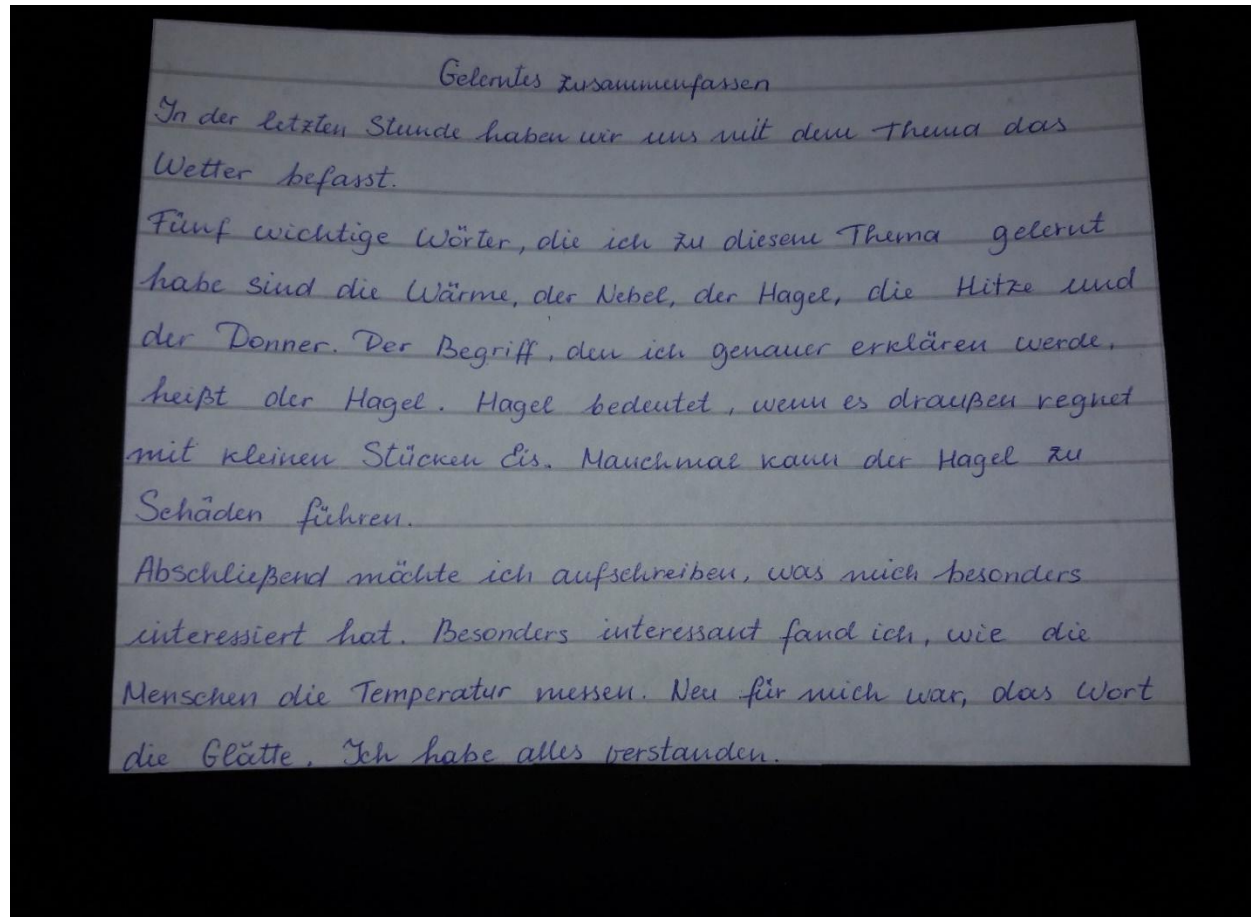 Gelerntes zusammenfassen
In der letzten Stunde haben wir uns mit dem Thema das
Wetter befasst.
Fünf wichtige Wörter, die ich zu diesem Thema gelernt
habe sind die Wärme, der Nebel, der Hagel, die Hitze und
der Donner. Der Begriff, den ich genauer erklären werde,
heißt der Hagel. Hagel bedeutet, wenn es draußen regnet
mit kleinen Stücken Eis. Manchmal kann der Hagel zu
Schäden führen.
Abschließend möchte ich aufschreiben, was mich besonders
interessiert hat. Besonders interessant fand ich, wie die
Menschen die Temperatur messen. Neu für mich war, das Wort
die Glätte. Ich habe alles verstanden.